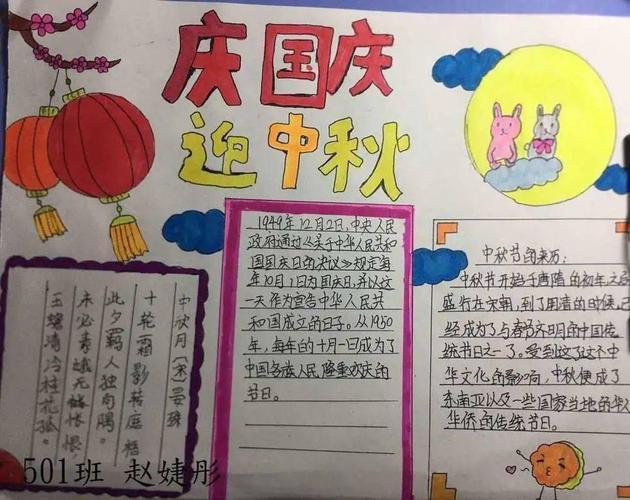 庆国庆
迎中秋
1949年12月2日,中央人民
政府通过《关于中华人民共和
国国庆日的决议》规定每
年10月1日为国庆日,并以这
一天作为宣告中华人民共
和国成立的日子。从1950
年,每年的十月一日成为了
中国各族人民隆重欢庆的
节日。
中秋节的来历:
中秋节开始于唐隋的初年,
盛行在宋朝,到了明清的时候,已
经成为了与春节齐明的中国传
统节日之一了。受到这了这个中
华文化的影响,中秋便成了
东南亚以及一些国家当地的华人
华侨的传统节日。
中秋月〔宋〕晏殊
十轮霜影转庭梧
此夕羁人独向隅。
未必素娥无怅恨
玉蟾清冷桂花孤。
501班 赵婕彤